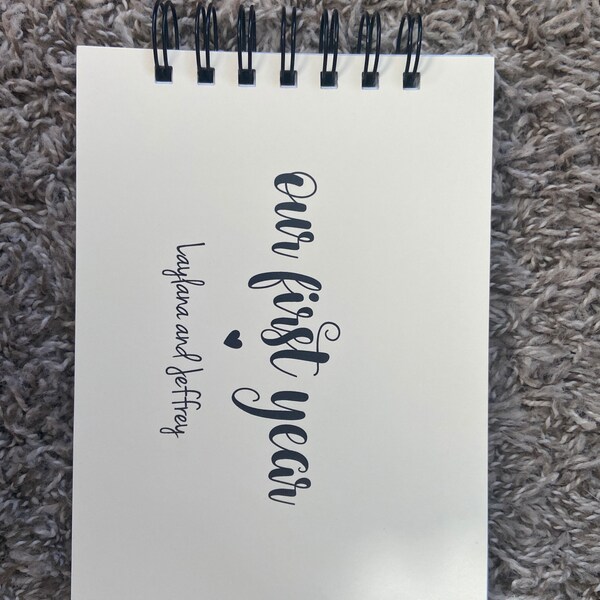 our first year
Laylana and Jeffrey